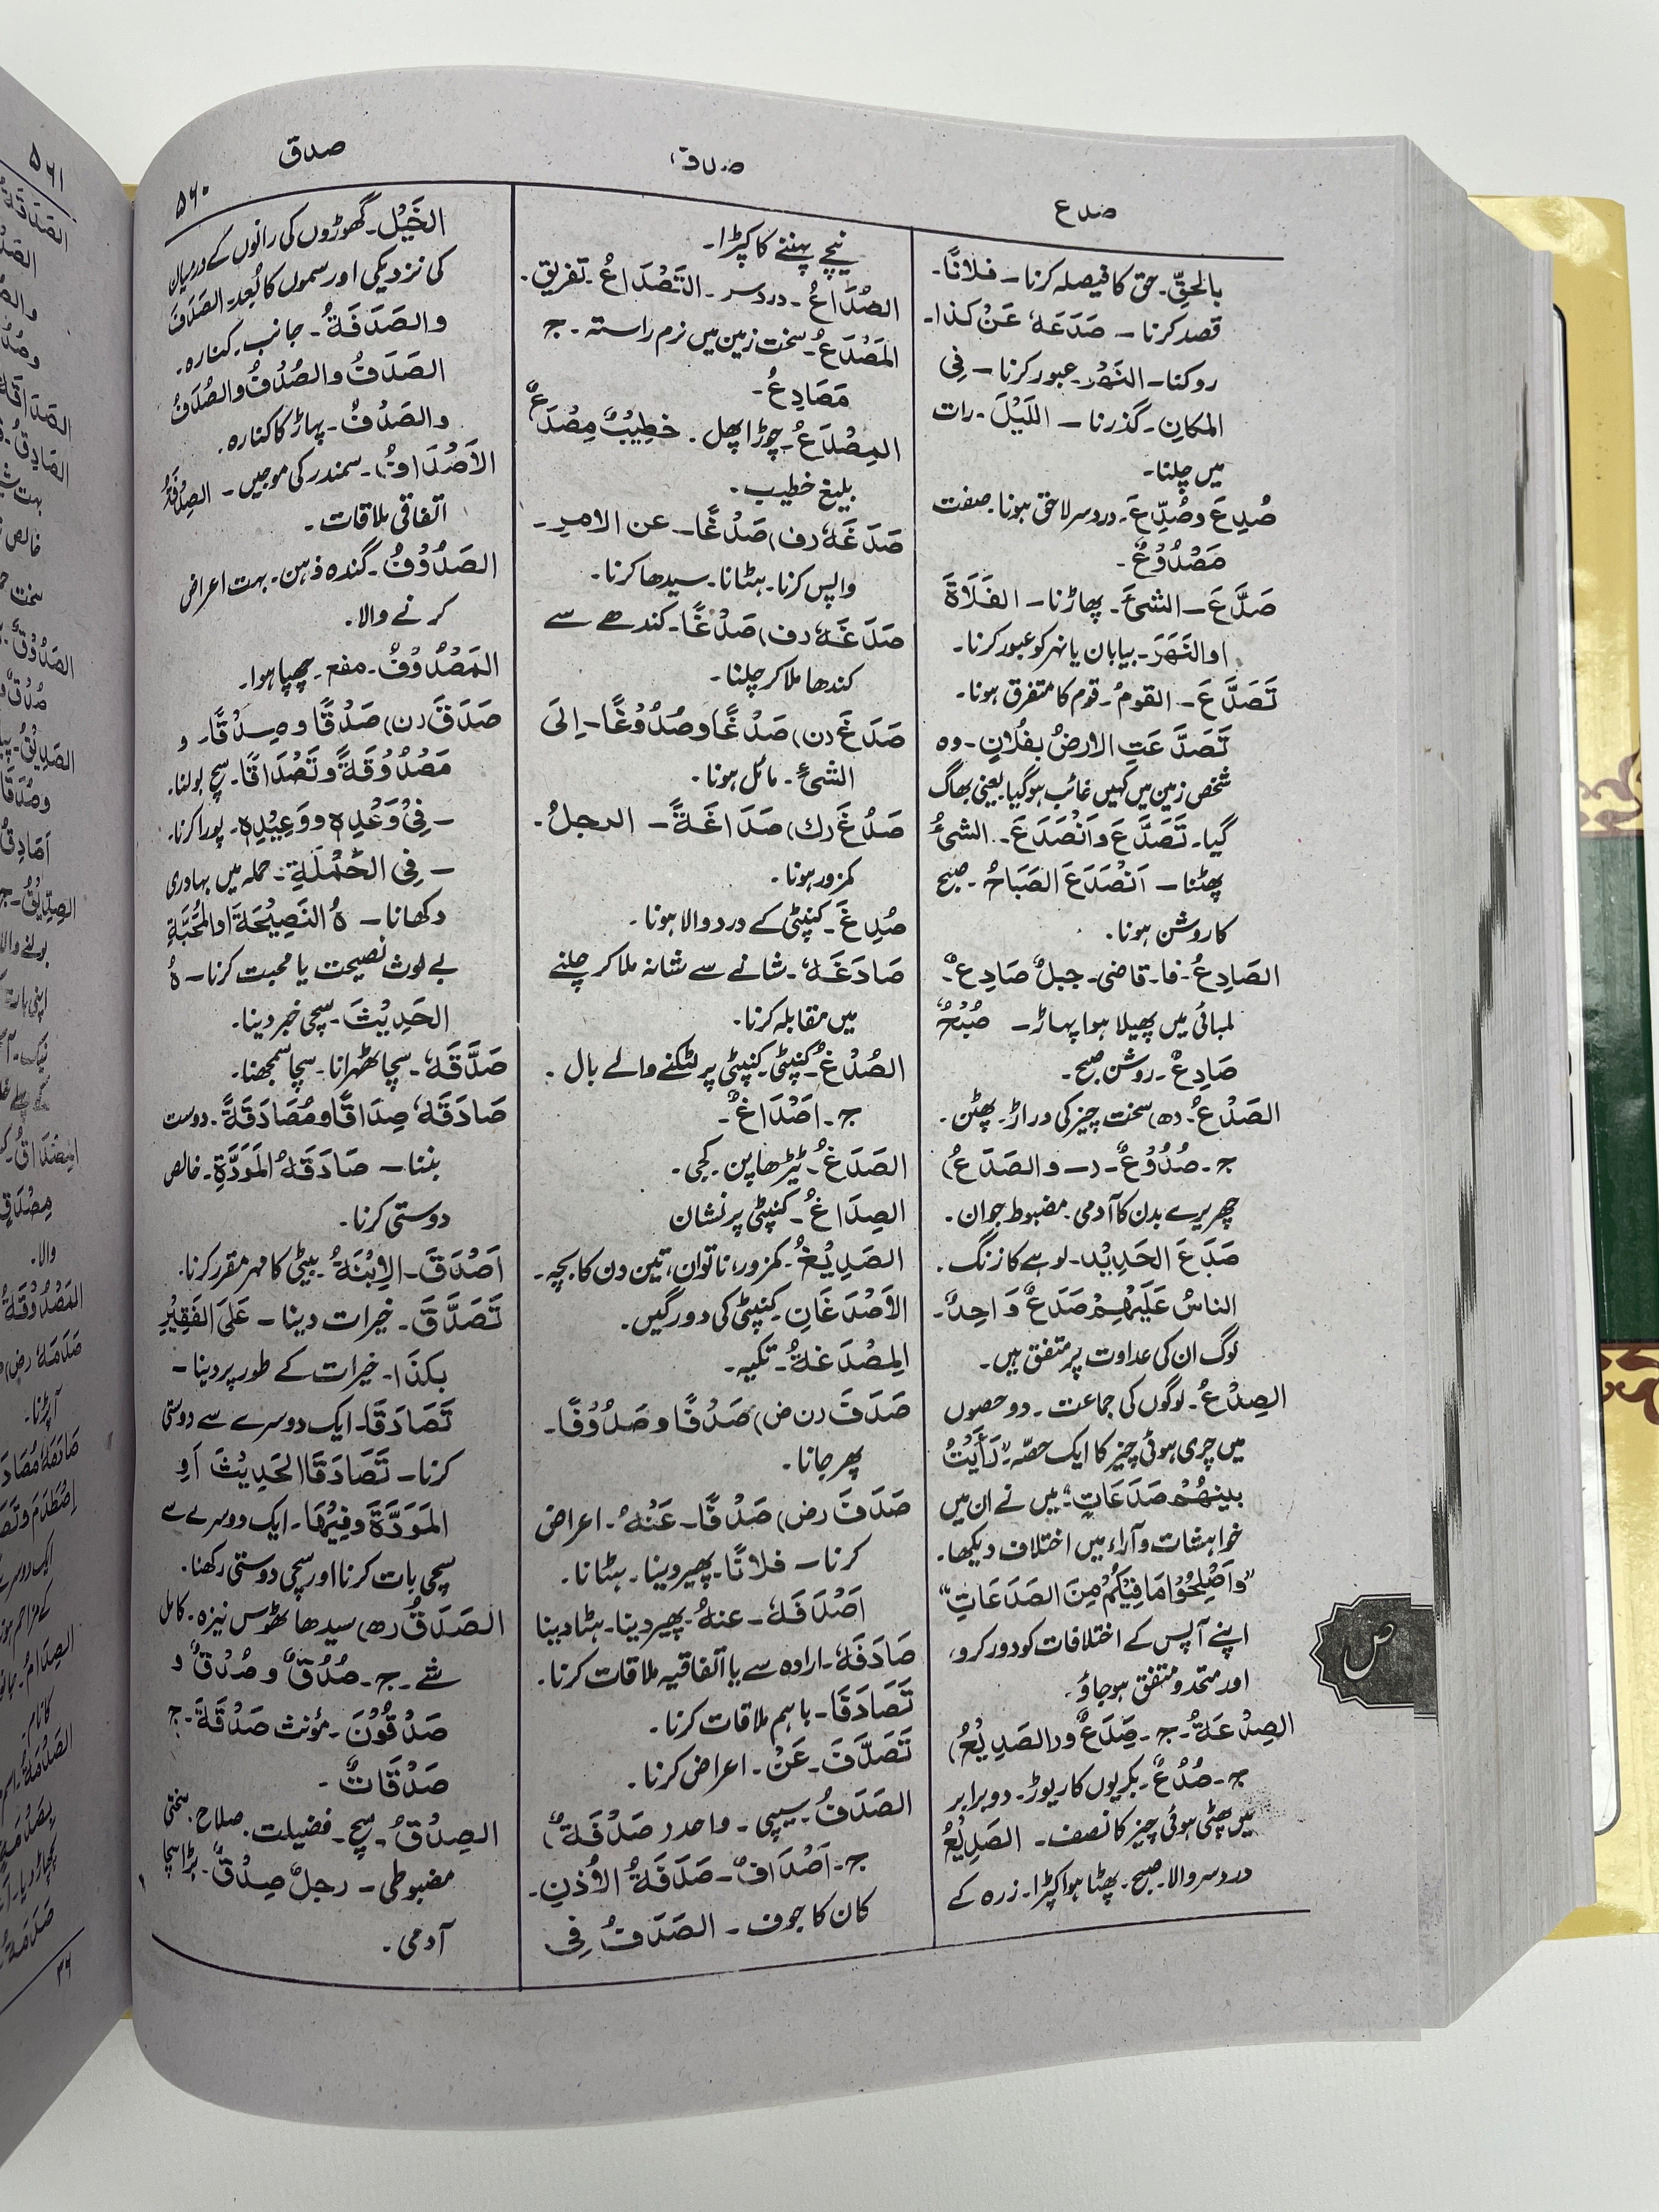 صدع
صدف
صدق
۵۶۰
بالحقِّ۔ حق کا فیصلہ کرنا۔ فلانًا۔
قصد کرنا۔ صَدَعَہٗ عَنْ کذا۔
روکنا۔ النَهْرَ۔ عبور کرنا۔ فِی
المکانِ۔ گذرنا۔ اللَیْلَ۔ رات
میں چلنا۔
صُدِعَ وصُدِّعَ۔ دردسر لاحق ہونا۔ صفت
مَصْدُوْعٌ۔
صَدَّعَ۔ الشئَ۔ پھاڑنا۔ الفَلَاۃَ
اوالنَهَرَ۔ بیابان یا نہر کو عبور کرنا۔
تَصَدَّعَ۔ القومُ۔ قوم کا متفرق ہونا۔
تَصَدَّعَتِ الارضُ بفُلَانٍ۔ وہ
شخص زمین میں کہیں غائب ہوگیا یعنی بھاگ
گیا۔ تَصَدَّعَ وَانْصَدَعَ۔ الشئُ
پھٹنا۔ اَنْصَدَعَ الصَبَاحُ۔ صبح
کا روشن ہونا۔
الصَادِعُ۔ فا۔ قاضی۔ جبلٌ صَادِعٌ۔
لمبائی میں پھیلا ہوا پہاڑ۔ صُبْحٌ
صَادِعٌ۔ روشن صبح۔
الصَدْعُ۔ (مص) سخت چیز کی دراڑ۔ پھٹن۔
ج۔ صُدُوْعٌ۔ (۔ والصَدَعُ)
چھریرے بدن کا آدمی۔ مضبوط جوان۔
صَدَعَ الحَدِیْد۔ لوہے کا زنگ۔
الناسُ عَلَیْهِمْ صَدَعٌ وَاحِدٌ۔
لوگ ان کی عداوت پر متفق ہیں۔
الصِدْعُ۔ لوگوں کی جماعت۔ دو حصوں
میں چری ہوئی چیز کا ایک حصّہ۔ "رَأَیْتُ
بینهُمْ صَدَعَاتٍ" میں نے ان میں
خواہشات و آراء میں اختلاف دیکھا۔
"وَاَصْلِحُوْا مَا فِیْکُمْ مِنَ الصَدَعَاتِ"
اپنے آپس کے اختلافات کو دور کرو،
اور متحد و متفق ہوجاؤ۔
الصِدْعَۃُ۔ ج۔ صِدَعٌ و(الصَدِیْعُ)
ج۔ صُدُعٌ۔ بکریوں کا ریوڑ۔ دو برابر
میں پھٹی ہوئی چیز کا نصف۔ الصَدِیْعُ
دردسر والا۔ صبح۔ پھٹا ہوا کپڑا۔ زرہ کے
نیچے پہننے کا کپڑا۔
الصُدَاعُ۔ دردسر۔ التَصْدَاعُ۔ تفریق۔
المَصْدَعُ۔ سخت زمین میں نرم راستہ۔ ج
مَصَادِعُ۔
المِصْدَعُ۔ چوڑا پھل۔ خطِیْبٌ مِصْدَعٌ
بلیغ خطیب۔
صَدَغَہٗ (ف) صَدْغًا۔ عن الامرِ۔
واپس کرنا۔ ہٹانا۔ سیدھا کرنا۔
صَدَغَہٗ (ف) صَدْغًا۔ کندھے سے
کندھا ملا کر چلنا۔
صَدَغَ (ن) صَدْغًا وصُدُوْغًا۔ اِلیَ
الشئِ۔ مائل ہونا۔
صَدُغَ (ک) صَدَاغَۃً۔ الرجلُ۔
کمزور ہونا۔
صُدِغَ۔ کنپٹی کے درد والا ہونا۔
صَادَغَہٗ۔ شانے سے شانہ ملا کر چلنے
میں مقابلہ کرنا۔
الصُدْغُ۔ کنپٹی۔ کنپٹی پر لٹکنے والے بال۔
ج۔ اَصْدَاغٌ۔
الصَدَغُ۔ ٹیڑھا پن۔ کجی۔
الصِدَاغُ۔ کنپٹی پر نشان
الصَدِیْغُ۔ کمزور، ناتواں، تین دن کا بچہ۔
الاَصْدَغَانِ۔ کنپٹی کی دو رگیں۔
المِصْدَغَۃُ۔ تکیہ۔
صَدَفَ (ن ض) صَدْفًا وصَدُوْفًا۔
پھر جانا۔
صَدَفَ (ض) صَدْفًا۔ عَنْہُ۔ اعراض
کرنا۔ فلانًا۔ پھیر دینا۔ ہٹانا۔
اَصْدَفَہٗ۔ عنہُ۔ پھیر دینا۔ ہٹا دینا
صَادَفَہٗ۔ ارادہ سے یا اتفاقیہ ملاقات کرنا۔
تَصَادَفَا۔ باہم ملاقات کرنا۔
تَصَدَّفَ۔ عَنْ۔ اعراض کرنا۔
الصَدَفُ۔ سیپی۔ واحد (صَدْفَۃٌ)
ج۔ اَصْدَافٌ۔ صَدَفَۃُ الاُذنِ۔
کان کا جوف۔ الصَدَفُ فِی
الخَیْل۔ گھوڑوں کی رانوں کے درمیان
کی نزدیکی اور سموں کا بُعد۔ الصَدَفُ
والصَدَفَۃُ۔ جانب۔ کنارہ۔
الصَدَفُ والصُدُفُ والصُدَفُ
والصَدُفُ۔ پہاڑ کا کنارہ۔
الاَصْدَافُ۔ سمندر کی موجیں۔ الصِدْفَۃُ
اتفاقی ملاقات۔
الصَدُوْفُ۔ گندہ ذہن۔ بہت اعراض
کرنے والا۔
المَصْدُوْفُ۔ مفع۔ چھپا ہوا۔
صَدَقَ (ن) صَدْقًا وصِدْقًا۔ و
مَصْدُوْقَۃً وتَصْدَاقًا۔ سچ بولنا۔
۔ فِیْ وَعْدِہٖ ووَعِیْدِہٖ۔ پورا کرنا۔
۔ فِی الحَمْلَۃِ۔ حملہ میں بہادری
دکھانا۔ ہُ النَصِیْحَۃَ اوالمَحَبَّۃَ
بے لوث نصیحت یا محبت کرنا۔ ہُ
الحَدِیْثَ۔ سچی خبر دینا۔
صَدَّقَہٗ۔ سچا ٹھہرانا۔ سچا سمجھنا۔
صَادَقَہٗ صِدَاقًا ومُصَادَقَۃً۔ دوست
بننا۔ صَادَقَہُ المَوَدَّۃَ۔ خالص
دوستی کرنا۔
اَصْدَقَ۔ الاِبْنَۃَ۔ بیٹی کا مہر مقرر کرنا۔
تَصَدَّقَ۔ خیرات دینا۔ عَلیَ الفَقِیْرِ
بکذا۔ خیرات کے طور پر دینا۔
تَصَادَقَا۔ ایک دوسرے سے دوستی
کرنا۔ تَصَادَقَا الحَدِیْثَ اَوِ
المَوَدَّۃَ وفِیْهَا۔ ایک دوسرے سے
سچی بات کرنا اور سچی دوستی رکھنا۔
الصَدْقُ (مص) سیدھا ٹھوس نیزہ۔ کامل
شے۔ ج۔ صُدُقٌ وصُدْقٌ و
صَدْقُوْنَ۔ مؤنث صَدْقَۃٌ۔ ج
صَدْقَاتٌ۔
الصِدْقُ۔ سچ۔ فضیلت۔ صلاح۔ سختی
مضبوطی۔ رجلٌ صِدْقٌ۔ بڑا سچا
آدمی۔
ص
۵۶۱